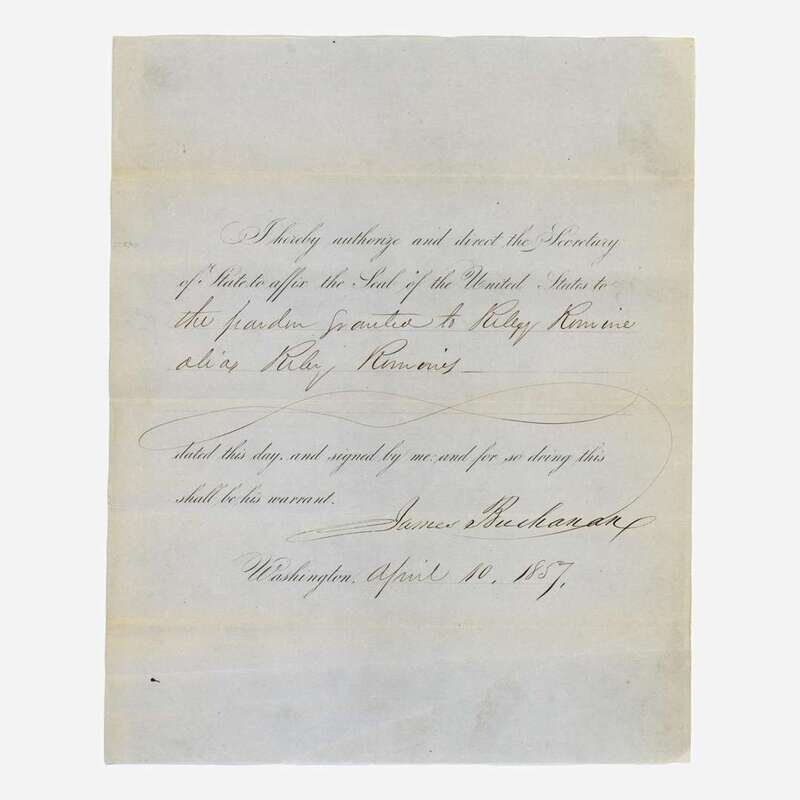 I hereby authorize and direct the Secretary
of State to affix the Seal of the United States to
the pardon granted to Riley Romine
alias Riley Romines
dated this day, and signed by me: and for so doing this
shall be his warrant.
James Buchanan
Washington, April 10, 1857.